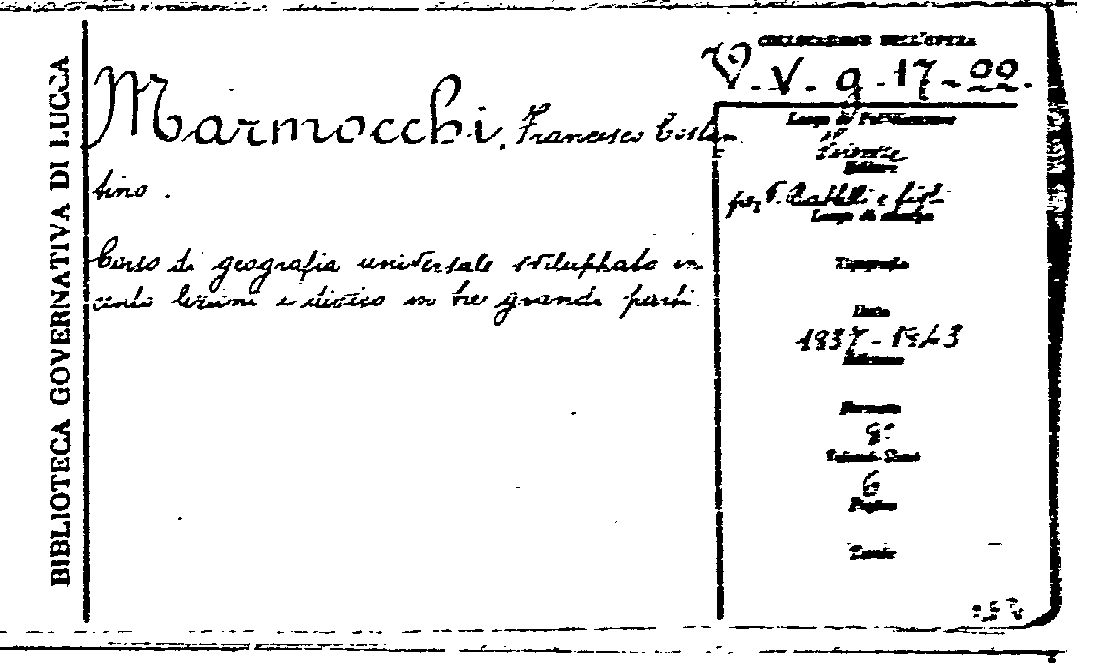 BIBLIOTECA GOVERNATIVA DI LUCCA
Marmocchi, Francesco Costan
tino.
Corso di geografia universale sviluppato in
cento lezioni e diviso in tre grandi parti.
COLLOCAZIONE DELL'OPERA
V. V. g. 17-00.
Luogo di Pubblicazione
Firenze
Editore
per V. Batelli e figli
Luogo di stampa
Tipografia
Data
1837-1843
Edizione
Formato
8°
Volumi
6
Pagine
Tavole